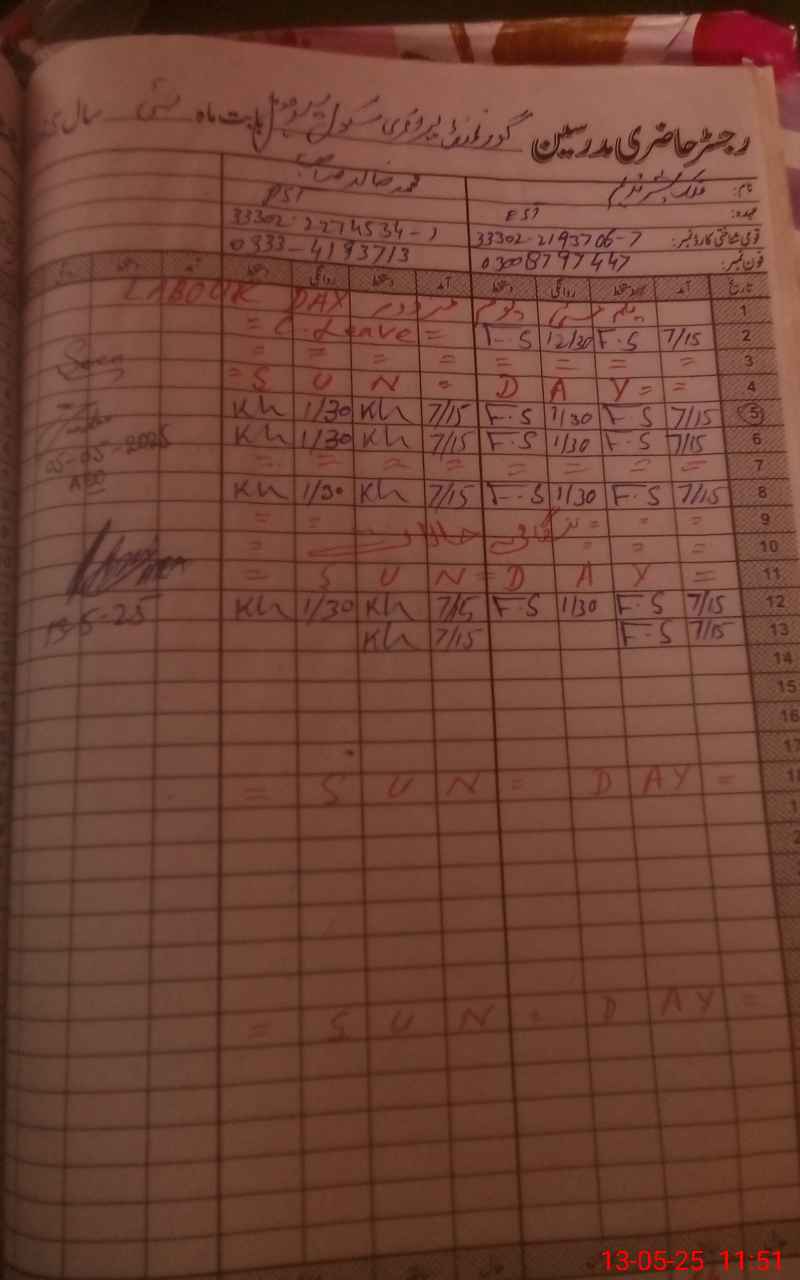 رجسٹر حاضری مدرسین گورنمنٹ پرائمری سکول بابت ماہ مئی سال
نام: محمد خالد
عہدہ: PST PST
قومی شناختی کارڈ نمبر: 33302-2193706-7 33302-2274534-1
فون نمبر: 03008797447 0333-4193713
تاریخ آمد دستخط روانگی دستخط آمد دستخط روانگی دستخط آمد دستخط
1 یکم مئی یوم مزدور LABOUR DAY
2 7/15 F.S 12/30 F.S = C.Leave =
3 = = = = = = =
4 = S U N = D A Y = =
5 7/15 F.S 1/30 F.S 7/15 Kh 1/30 Kh
6 7/15 F.S 1/30 F.S 7/15 Kh 1/30 Kh
05-05-2025
7 = = = = = = = =
8 7/15 F.S 1/30 F.S 7/15 Kh 1/30 Kh
9 = = = = =
10 = = = =
11 = S U N = D A Y =
12 7/15 F.S 1/30 F.S 7/15 Kh 1/30 Kh
13-5-25
13 7/15 F.S 7/15 Kh
14
15
16
17
= S U N = D A Y =
= S U N = D A Y =
13-05-25 11:51